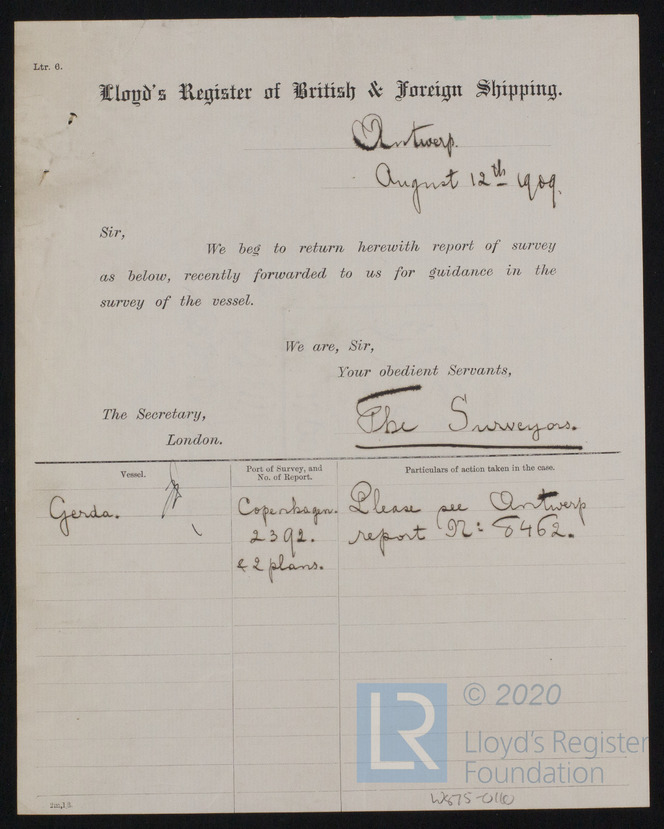 Ltr. 6.
Lloyd's Register of British & Foreign Shipping.
Antwerp.
August 12th 1909.
Sir,
We beg to return herewith report of survey
as below, recently forwarded to us for guidance in the
survey of the vessel.
We are, Sir,
Your obedient Servants,
The Secretary,
London.
The Surveyors.
Vessel.
Port of Survey, and
No. of Report.
Particulars of action taken in the case.
Gerda.
Copenhagen.
2392.
& 2 plans.
Please see Antwerp
report No: 8462.
LR
© 2020
Lloyd's Register
Foundation
W875-0110